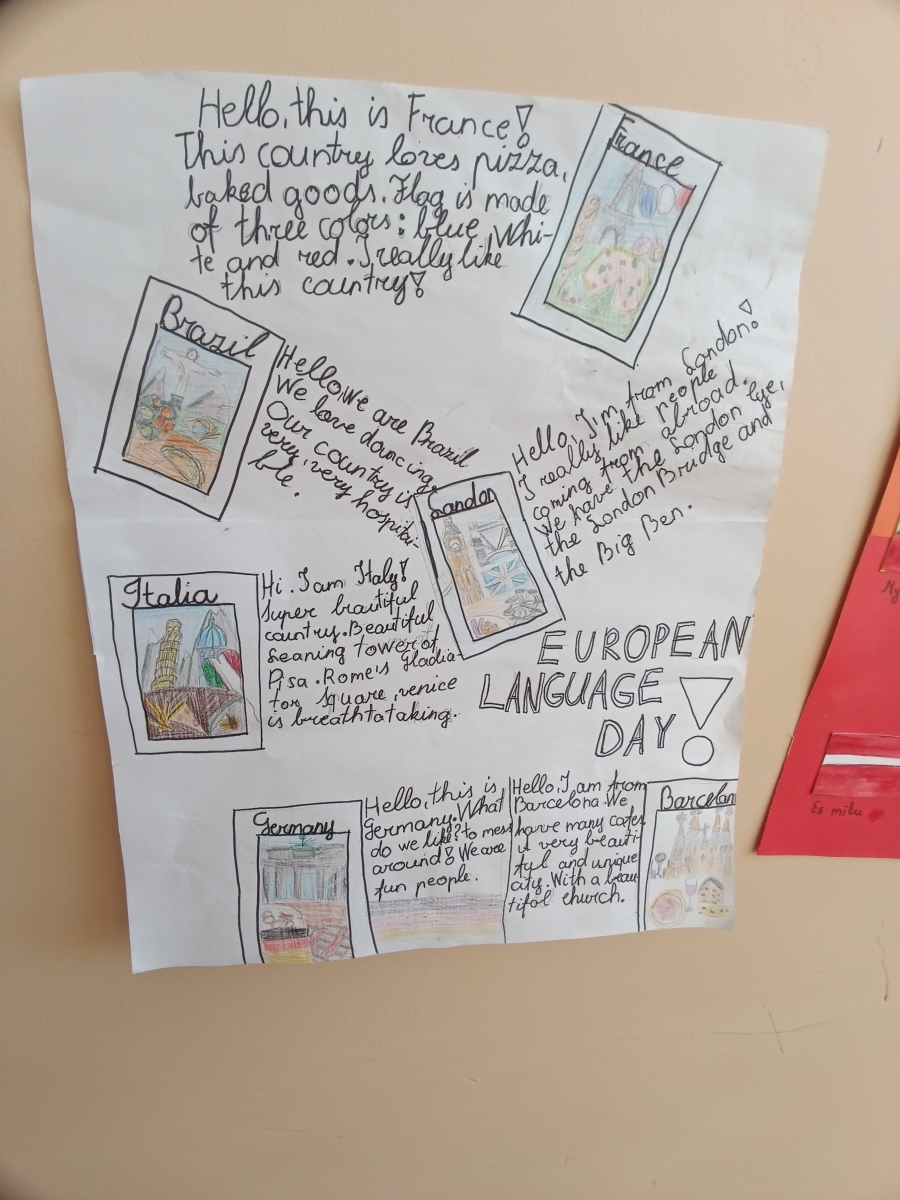 Hello, this is France!
This country loves pizza,
baked goods. Flag is made
of three colors: blue, whi-
te and red. I really like
this country!
France
Brazil
Hello, We are Brazil
We love dancing.
Our country is
very, very hospitai-
ble.
London
Hello, I'm from London!
I really like people
coming from abroad.
We have the London Eye,
the London Brudge and
the Big Ben.
Italia
Hi. I am Italy!
Super beautiful
country. Beautiful
Leaning tower of
Pisa. Rome's Gladia-
tor Square, venice
is breathtataking.
EUROPEAN
LANGUAGE
DAY!
Germany
Hello, this is
Germany. What
do we like? to mess
around! We are
fun people.
Hello, I am from
Barcelona. We
have many cafes
a very beauti-
ful and unique
city. With a beau-
tifol church.
Barcelon
My
Es mīlu